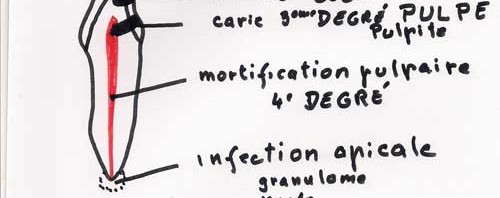 carie 3ème DEGRÉ PULPE
Pulpite
mortification pulpaire
4° DEGRÉ
infection apicale
granulome